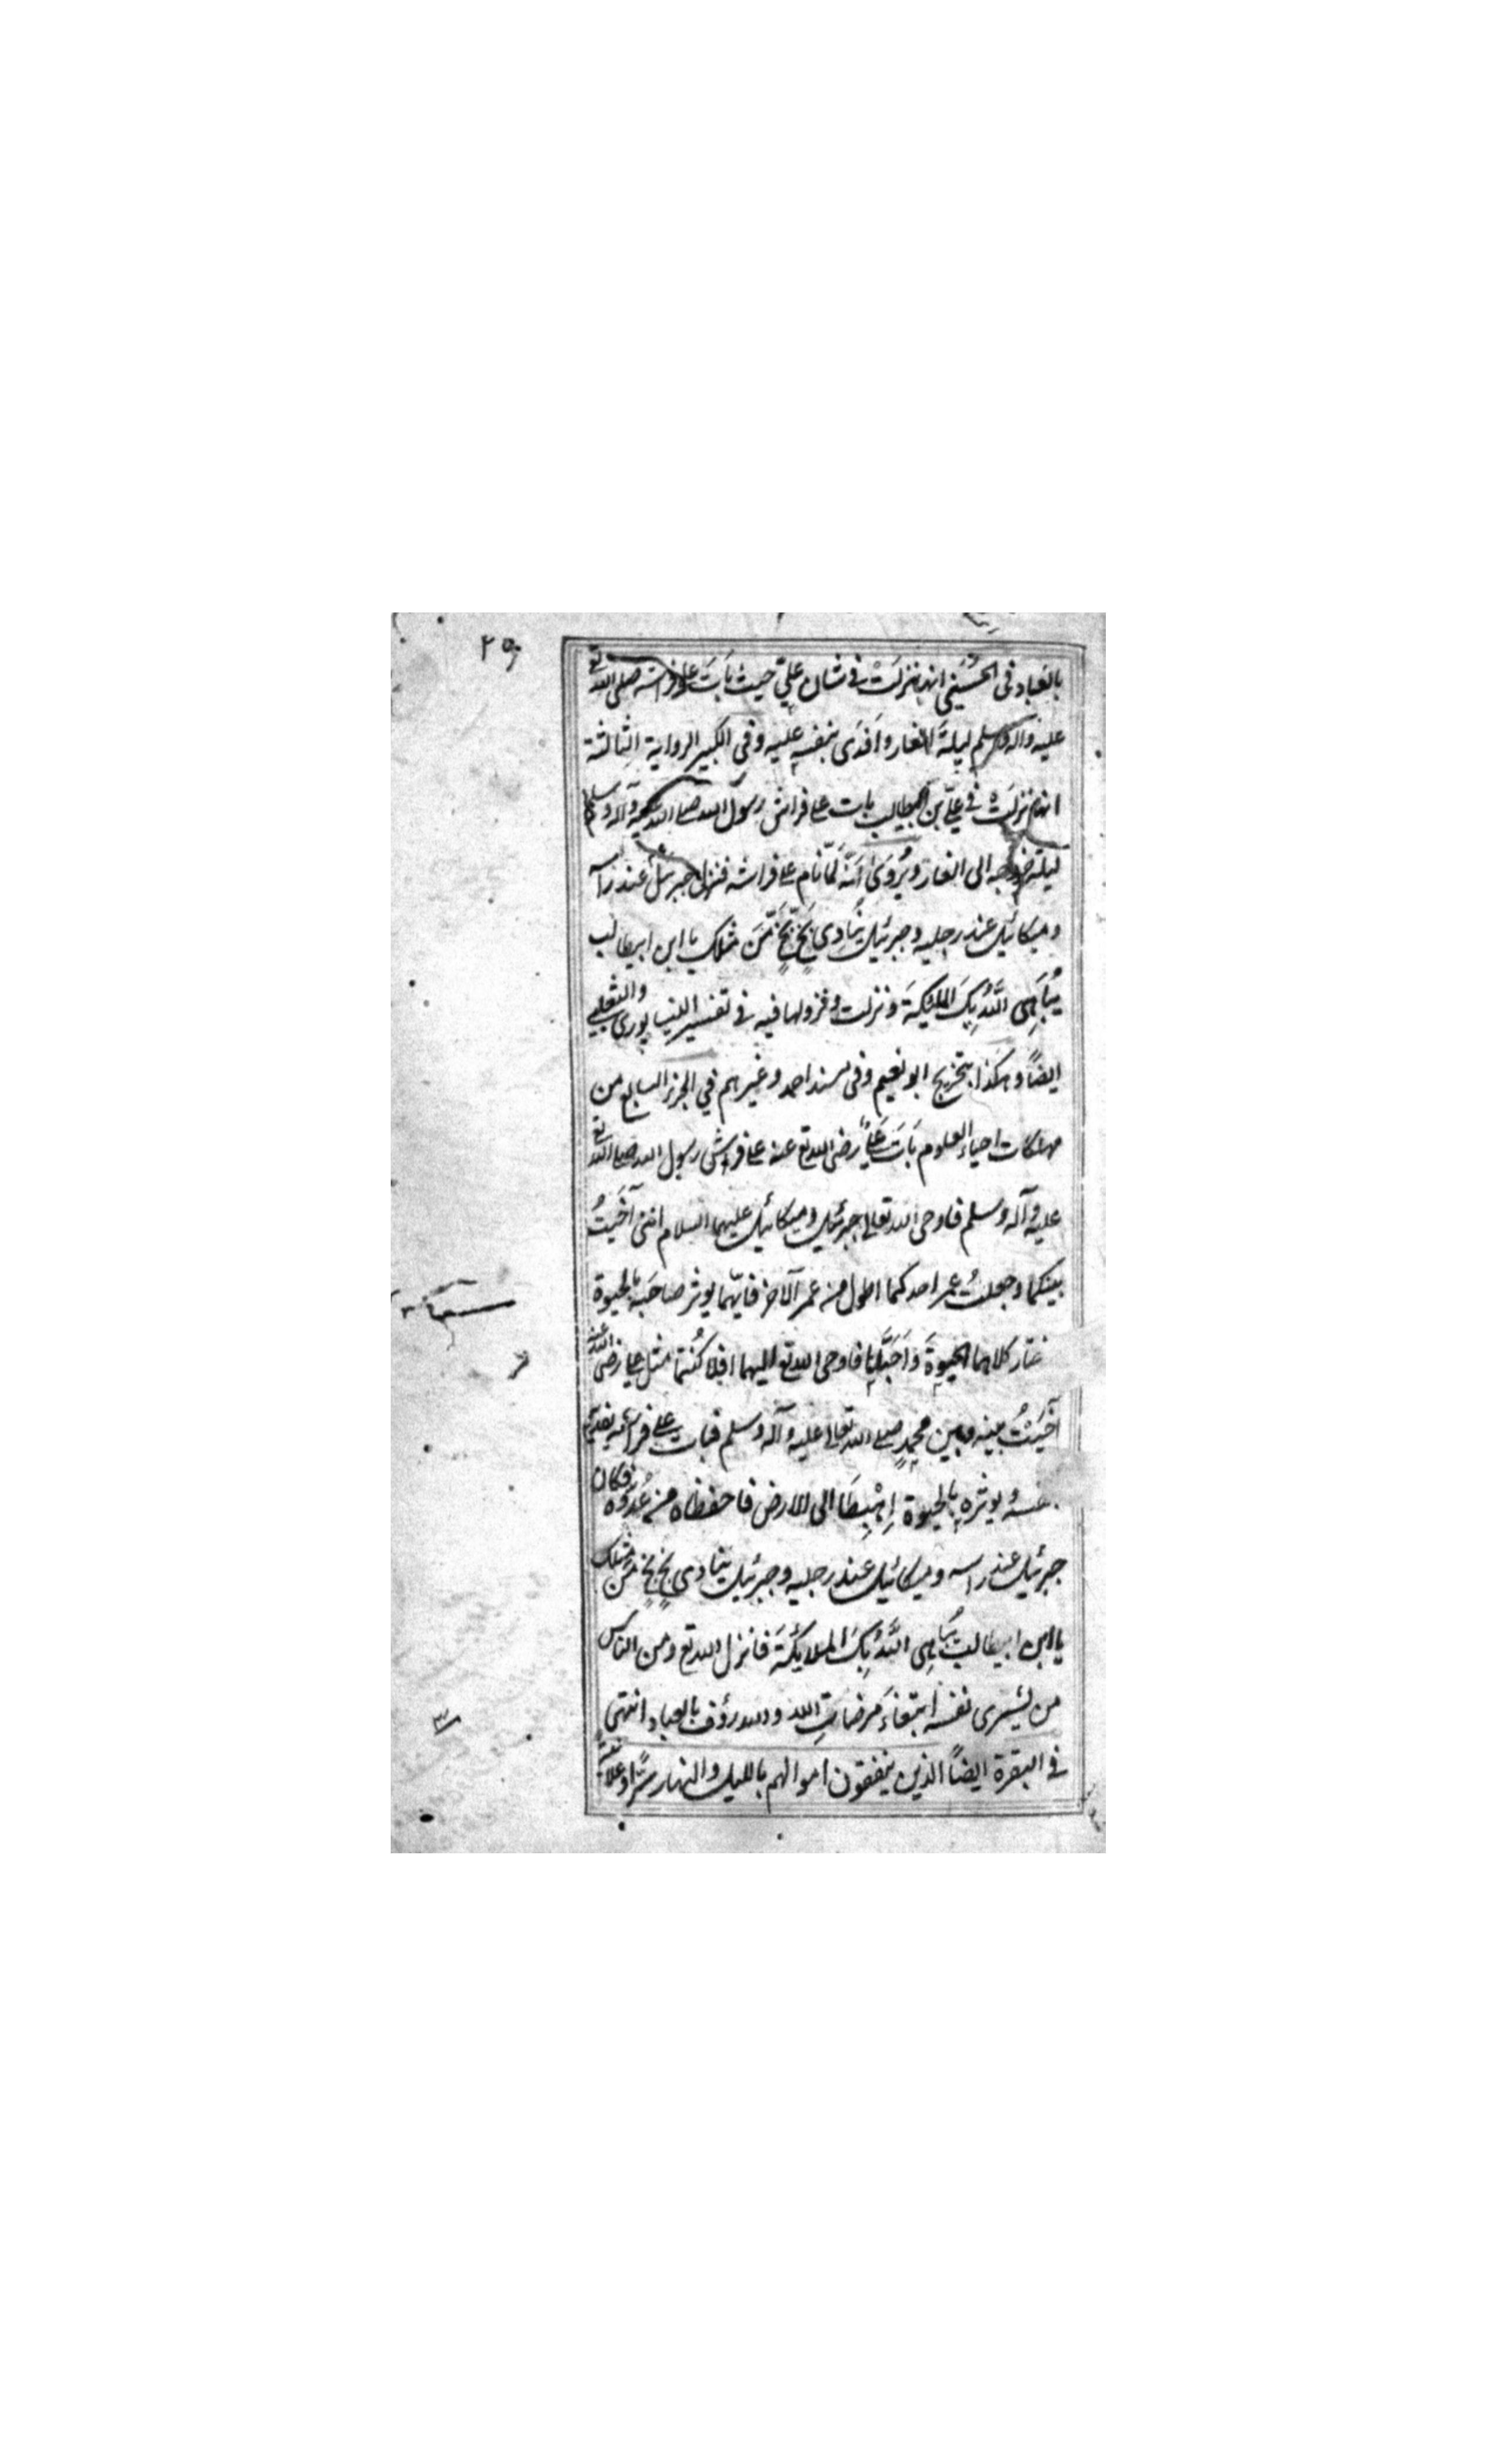 بالعباد فى الحُسَينى انها نزلت فى شان علىّ حيث بَاتَ على فراشه صلى الله تع
عليه وآله وسلم ليلة الغار وَافدَى بنفسه عليه وفى الكبير الرواية الثالثة
انها نزلَتْ فى علىّ بن ابيطالب بات على فراش رسول الله صلى الله عليه وآله وسلم
ليلة خروجه الى الغار ويُروىٰ اَنّه لَمّا نام على فراشه فنزل جبرئيل عند رأسه
وميكائيل عند رجليه وجبرئيل ينَادِى بَخٍّ بَخٍّ مَّنْ مثلك يا ابن ابيطالب
يُبَاهِى اللهُ بِكَ الملٰئِكةَ ونزلت ونزولها فيه فى تفسير النيسابورى والثعلبى
ايضاً وهكذا بتخريج ابو نعيم وفى مسند احمد وغيرهم فى الجزء السابع من
مهلكات احياء العلوم بَاتَ عَلِىٌّ رضى الله تع عنه على فراش رسول الله صلى الله تع
عليه وآله وسلم فاوحى الله تعالى جبرئيل وميكائيل عليهما السلام اننى آخَيتُ
بينكما وجعلتُ عمر احدكما اطول من عمر الآخر فايّهما يوثر صاحبَه بالحيوة
ختار كلاهما الحيوةَ وَاَحَبَّاهَا فاوحى الله تع اليهما افلا كُنتما مثل على رضى الله عنه
آخَيتُ بينه وبين محمدٍ صلى الله تعالى عليه وآله وسلم فبات على فراشه يفديه
نفسهُ يوثره بالحيوة اِهْبِطَا الى الارض فاحفظاه من عُدُوِّه فكان
جبرئيل عند راسه وميكائيل عند رجليه وجبرئيل ينادى بَخٍ بَخٍ مَن مثلك
يا ابن ابيطالب يُبَاهِى اللهُ بِكَ الملائكةَ فانزل الله تع ومن الناس
من يشرى نفسه ابتغاءَ مَرضَاتِ الله والله رؤف بالعباد انتهى
فى البقرة ايضاً الذين ينفقون اموالهم بالليل والنهار سرًّا وعلانية